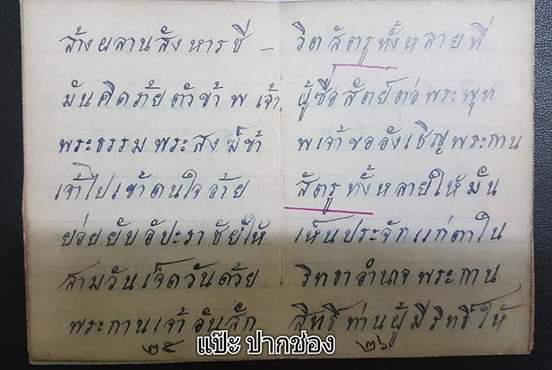 ล้างผลานสังหารชี –
มันคิดร้ายตัวข้าพเจ้า
พระธรรมพระสงฆ์ข้า
เจ้าไปเข้าดนใจอ้าย
ย่อยยับอัปะราชัยให้
สามวันเจ็ดวันด้วย
พระกานเจ้าอันสัก
๒๕
วิตสัตรูทั้งหลายที่
ผู้ซื่อสัตย์ต่อพระพุท
พเจ้าขออังเชิญพระกาน
สัตรูทั้งหลายให้มัน
เห็นประจักแก่ตาใน
ริทธาอำนาจพระกาน
สิทธิ์ท่านผู้มีริทธิ์ให้
๒๖
แป๊ะ ปากช่อง